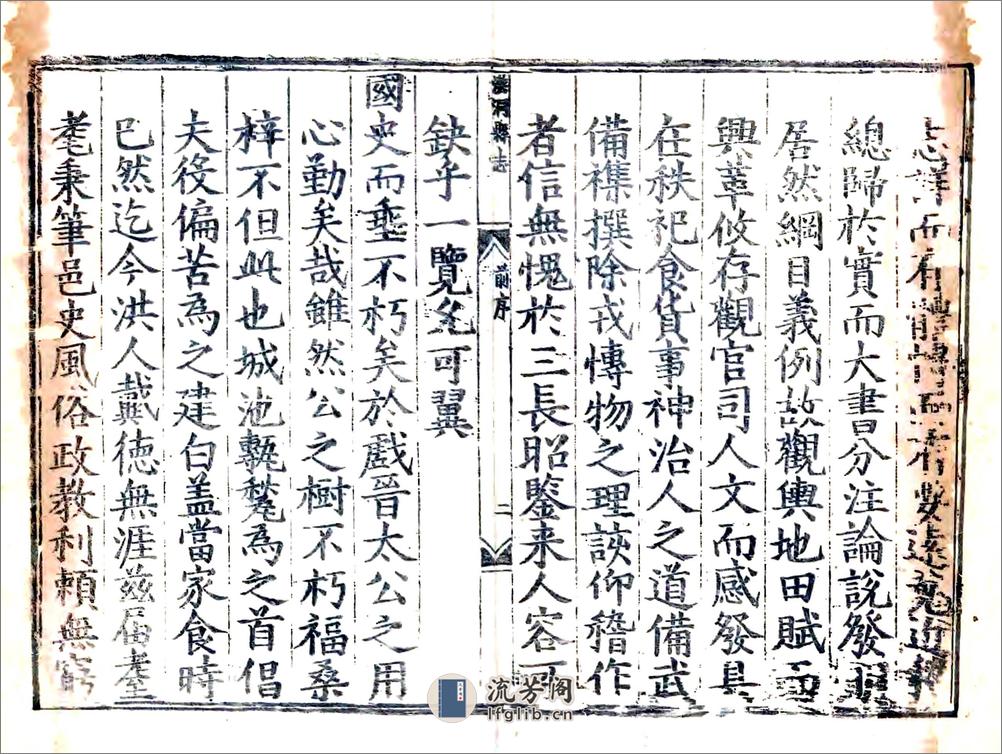 志詳而有體
總歸於實而大書分注論說發
居然綱目義例故觀輿地田賦而
興革攸存觀官司人文而感發具
在秩祀食貨事神治人之道備武
備襍撰除戎慱物之理該仰稽作
者信無愧於三長昭鑒来人容可
缺乎一覽允可翼
洪洞縣志
前序
二
國史而垂不朽矣於戲晉太公之用
心勤矣哉雖然公之樹不朽福桑
梓不但此也城池甎甃為之首倡
夫役偏苦為之建白盖當家食時
已然迄今洪人戴徳無涯茲届耄
耄秉筆邑史風俗政教利賴無窮
流芳阁
lfglib.cn